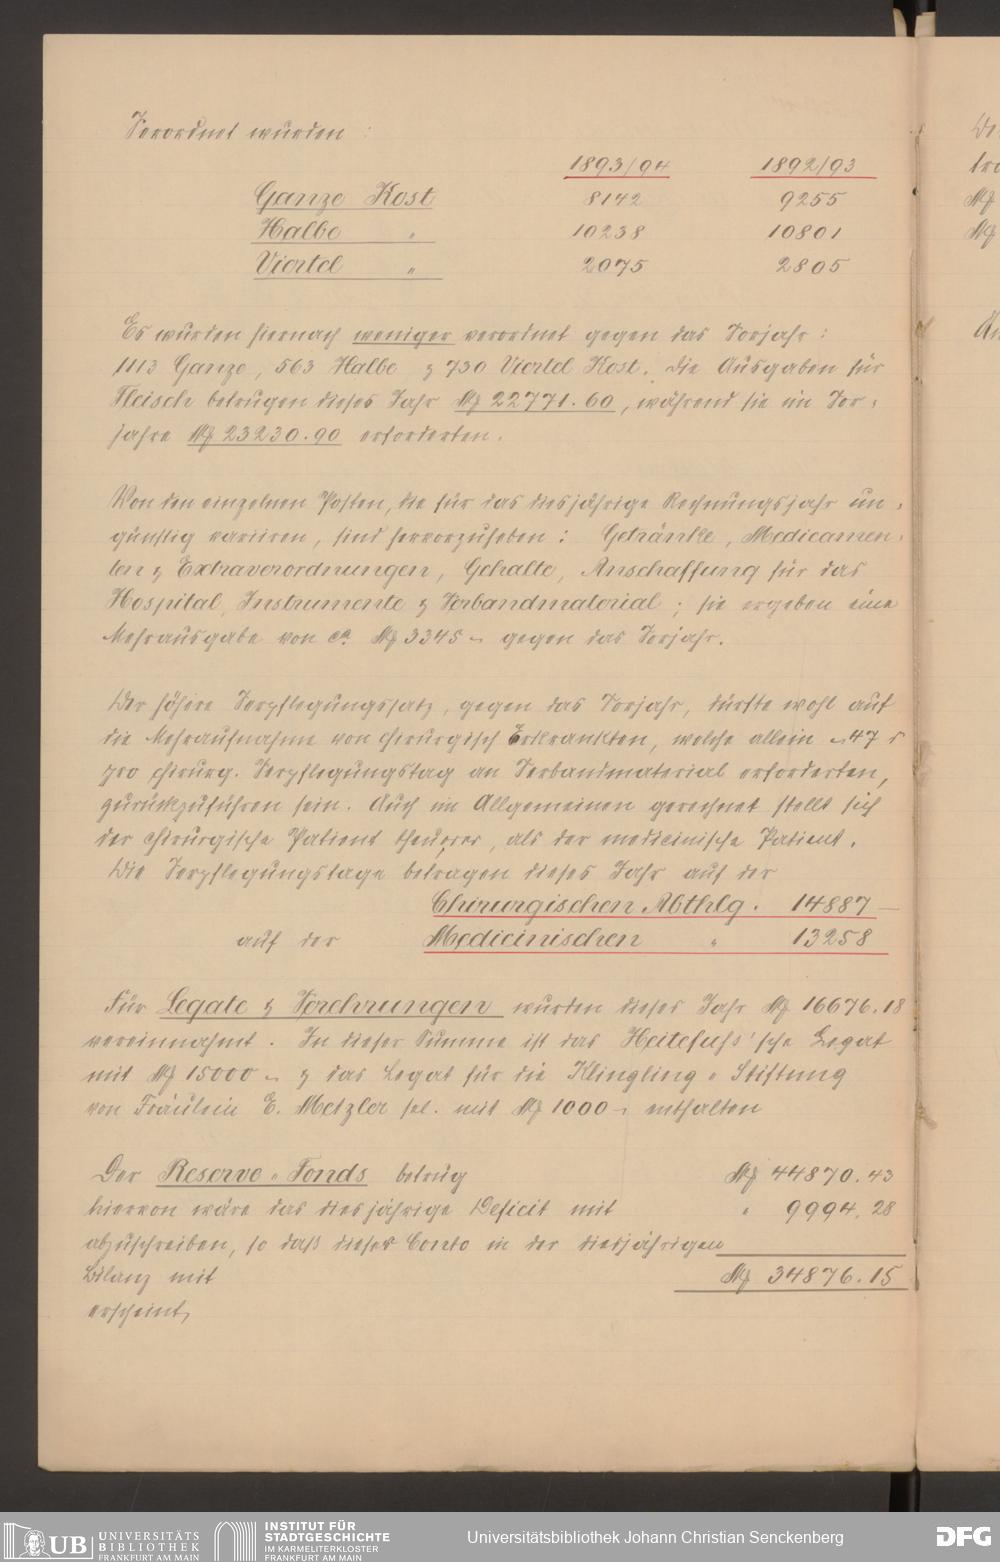 Verordnet wurden :
1893/94 1892/93
Ganze Kost 8142 9255
Halbe " 10238 10801
Viertel " 2075 2805
Es wurden hiernach weniger verordnet gegen das Vorjahr :
1113 Ganze, 563 Halbe & 730 Viertel Kost. Die Ausgaben für
Fleisch betrugen dieses Jahr M 22771.60, während sie im Vor-
jahre M 23230.90 erforderten.
Von den einzelnen Posten, die für das diesjährige Rechnungsjahr un-
günstig variiren, sind hervorzuheben : Getränke, Medicamen-
ten & Extraverordnungen, Gehalte, Anschaffung für das
Hospital, Instrumente & Verbandmaterial ; sie ergeben eine
Mehrausgabe von ca. M 3345 - gegen das Vorjahr.
Der höhere Verpflegungssatz, gegen das Vorjahr, dürfte wohl auf
die Mehraufnahme von chirurgisch Erkrankten, welche allein -.47 ₰
pro chirurg. Verpflegungstag an Verbandmaterial erforderten,
zurückzuführen sein. Auch im Allgemeinen gerechnet stellt sich
der chirurgische Patient theuerer, als der medicinische Patient.
Die Verpflegungstage betragen dieses Jahr auf der
Chirurgischen Abthlg. 14887 —
auf der Medicinischen " 13258
Für Legate & Verehrungen wurden dieses Jahr M 16676.18
vereinnahmt. In dieser Summe ist das Heitefuss'sche Legat
mit M 15000 - & das Legat für die Klingling-Stiftung
von Fräulein E. Metzler sel. mit M 1000 - enthalten
Der Reserve-Fonds betrug M 44870.43
hiervon wäre das diesjährige Deficit mit " 9994.28
abzuschreiben, so daß dieser Conto in der diesjährigen
Bilanz mit M 34876.15
erscheint,
UB UNIVERSITÄTS
BIBLIOTHEK
FRANKFURT AM MAIN
INSTITUT FÜR
STADTGESCHICHTE
IM KARMELITERKLOSTER
FRANKFURT AM MAIN
Universitätsbibliothek Johann Christian Senckenberg
DFG